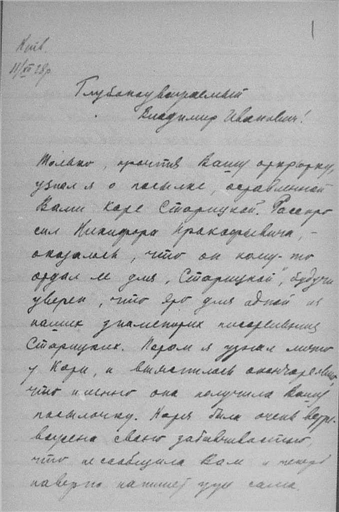 1
Київ
11/XII 28р
Глубокоуважаемый
Владимир Иванович!
Только, прочтя Вашу открытку,
узнал я о посылке, оставленной
Вами Каре Старицкой. Расспро
сил Никифора Прокофьевича, -
оказалось, что он кому-то
отдал ее для „Старицкой", будучи
уверен, что это для одной из
наших знаменитых писательниц
Старицких. Потом я узнал лично
у Кари, и выяснилось окончательно
что именно она получила Вашу
посылочку. Каря была очень
своею забывчивостью
что не сообщила Вам и теперь
наверно напишет сама.